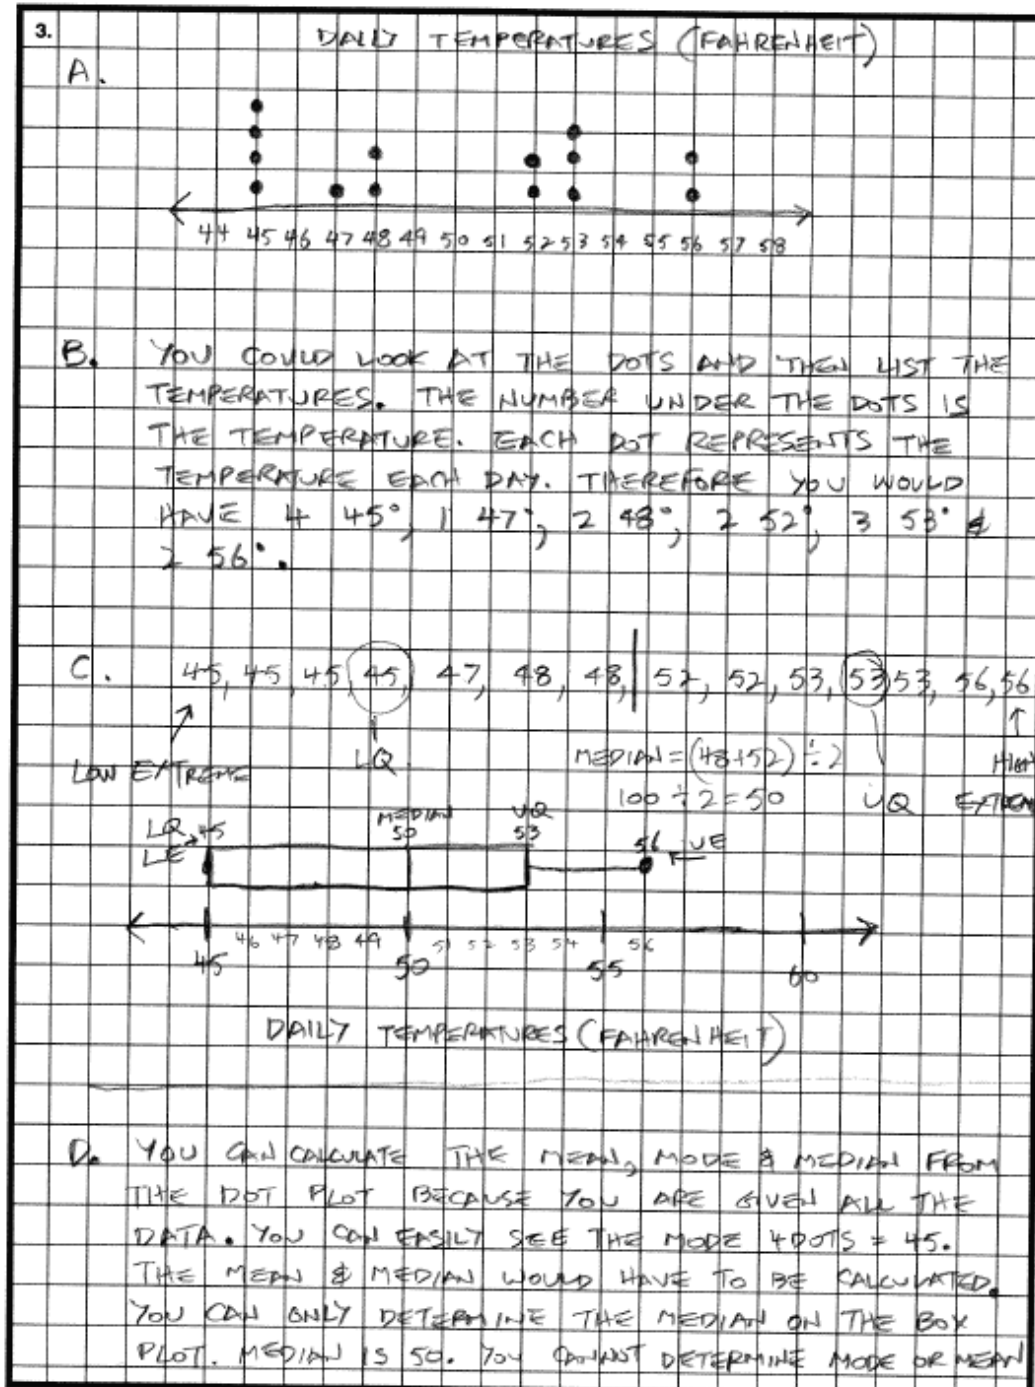 3.
DAILY TEMPERATURES (FAHRENHEIT)
A.
44 45 46 47 48 49 50 51 52 53 54 55 56 57 58
B. YOU COULD LOOK AT THE DOTS AND THEN LIST THE
TEMPERATURES. THE NUMBER UNDER THE DOTS IS
THE TEMPERATURE. EACH DOT REPRESENTS THE
TEMPERATURE EACH DAY. THEREFORE YOU WOULD
HAVE 4 45°, 1 47°, 2 48°, 2 52°, 3 53° &
2 56°.
C. 45, 45, 45, 45, 47, 48, 48, | 52, 52, 53, 53 53, 56, 56
LOW EXTREME LQ MEDIAN = (48+52) ÷ 2 HIGH
100 ÷ 2 = 50 UQ EXTREM
LQ 45 MEDIAN UQ
LE 50 53 56 UE
46 47 48 49 51 52 53 54 56
45 50 55 60
DAILY TEMPERATURES (FAHRENHEIT)
D. YOU CAN CALCULATE THE MEAN, MODE & MEDIAN FROM
THE DOT PLOT BECAUSE YOU ARE GIVEN ALL THE
DATA. YOU CAN EASILY SEE THE MODE 4 DOTS = 45.
THE MEAN & MEDIAN WOULD HAVE TO BE CALCULATED.
YOU CAN ONLY DETERMINE THE MEDIAN ON THE BOX
PLOT. MEDIAN IS 50. YOU CANNOT DETERMINE MODE OR MEAN